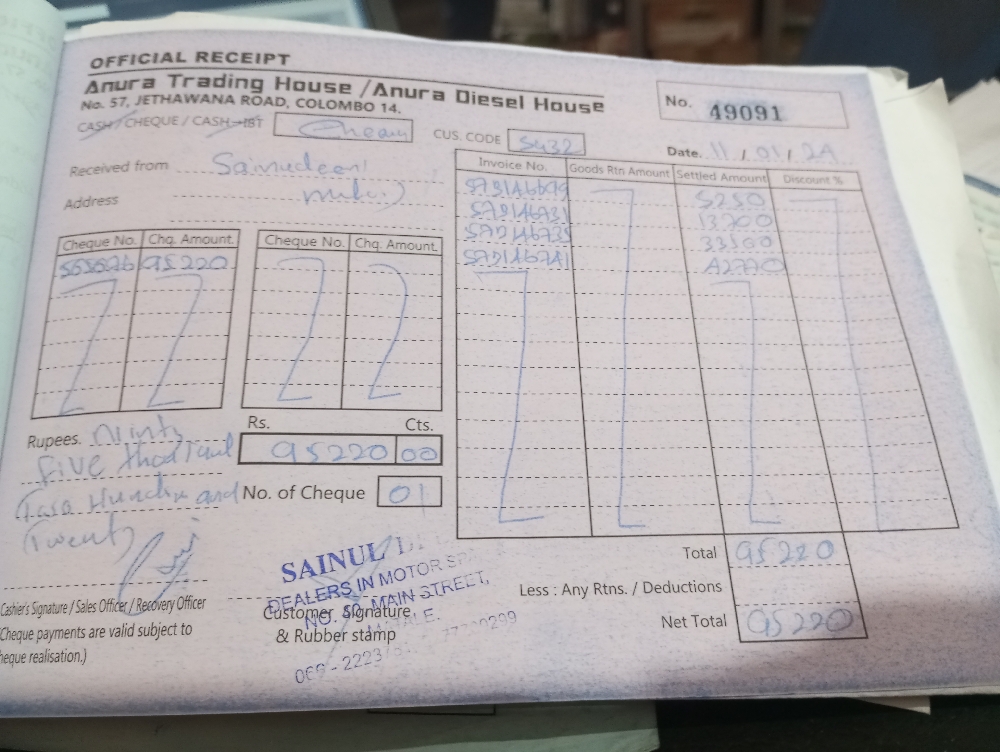 OFFICIAL RECEIPT
Anura Trading House / Anura Diesel House
No. 57, JETHAWANA ROAD, COLOMBO 14.
No. 49091
CASH / CHEQUE / CASH-IST
CUS. CODE S432
Date. 11 / 01 / 24
Received from Sainudeen
Address
Invoice No. Goods Rtn Amount Settled Amount Discount %
5250
13700
33500
42770
Cheque No. Chq. Amount.
565626 95220
Cheque No. Chq. Amount.
Rs. Cts.
95220 00
Rupees. Ninty
five thousand
Two Hundred and
Twenty
No. of Cheque 01
Total 95220
Less : Any Rtns. / Deductions
Net Total 95220
Cashier's Signature / Sales Officer / Recovery Officer
Cheque payments are valid subject to
heque realisation.)
Customer Signature
& Rubber stamp
DEALERS IN MOTOR
NO. 50, MAIN STREET,